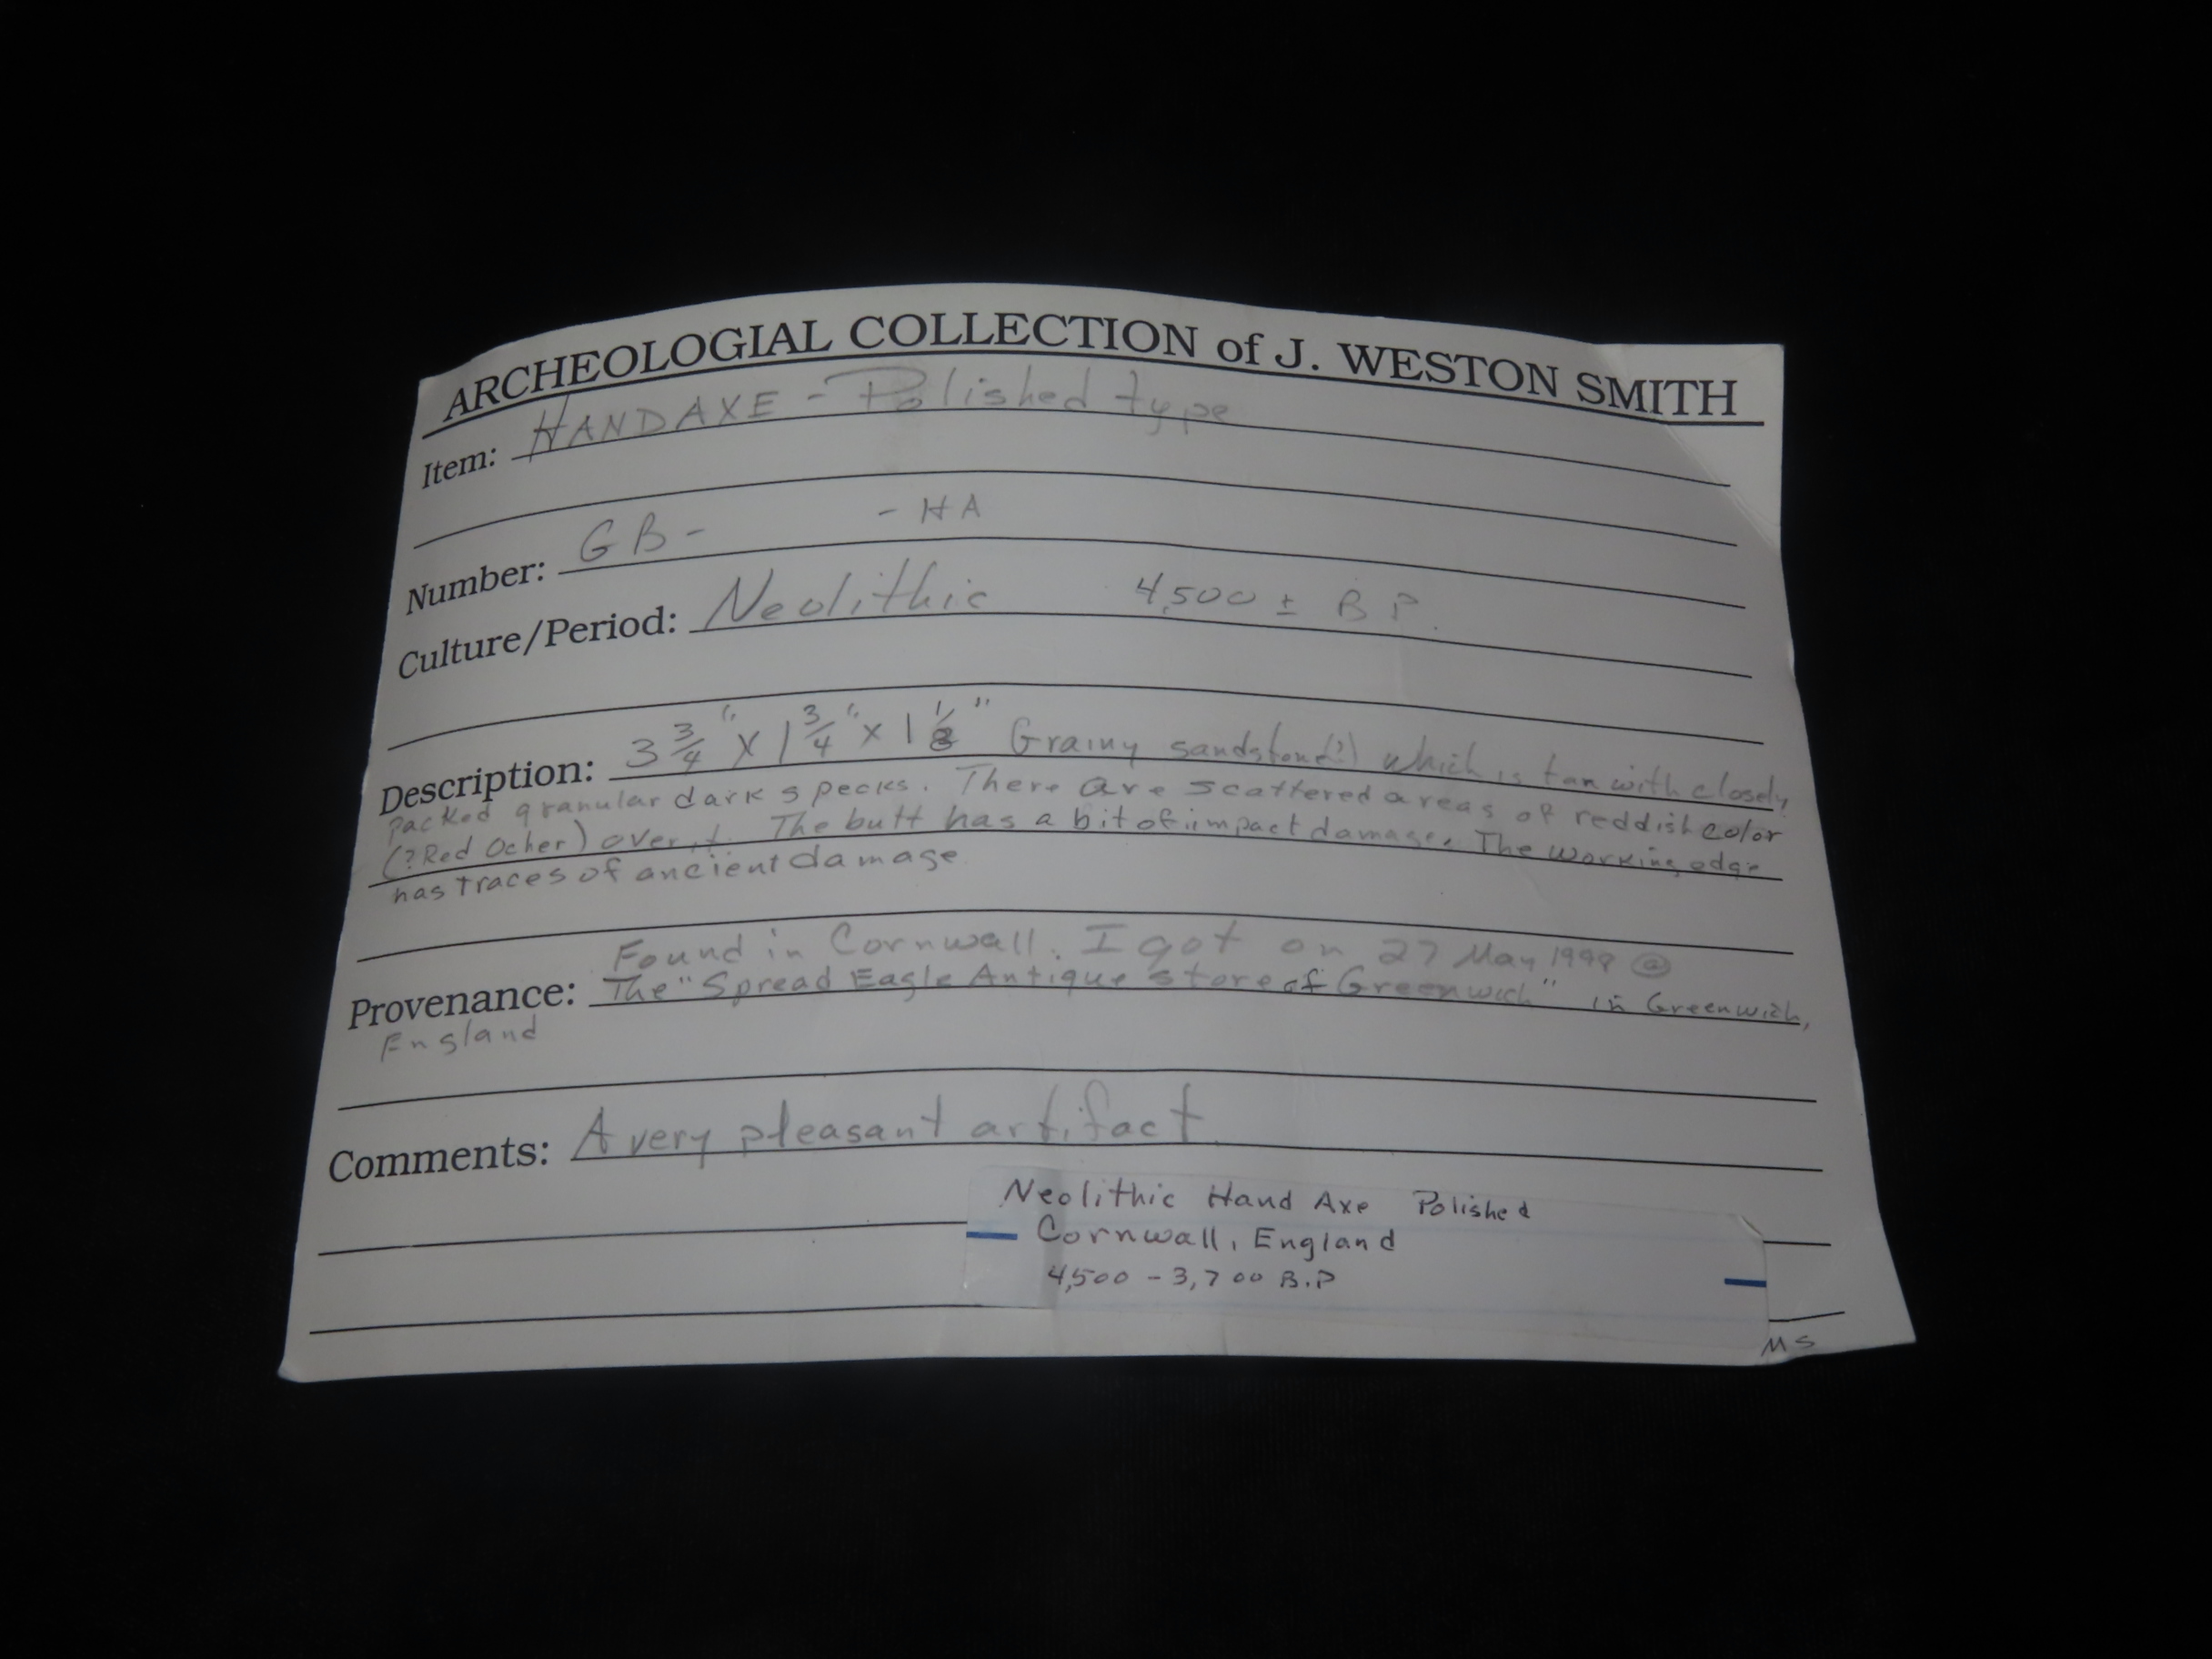 ARCHEOLOGIAL COLLECTION of J. WESTON SMITH
Item: HANDAXE - Polished type
Number: GB- - HA
Culture/Period: Neolithic 4,500 ± B P.
Description: 3 3/4" X 1 3/4" X 1 1/8" Grainy sandstone(?) which is tan with closely
packed granular dark specks. There are scattered areas of reddish color
(?Red Ocher) over it. The butt has a bit of impact damage. The working edge
has traces of ancient damage
Provenance: Found in Cornwall. I got on 27 May @
The "Spread Eagle Antique store of Greenwich" in Greenwich,
England
Comments: A very pleasant artifact
Neolithic Hand Axe Polished
Cornwall, England
4,500 - 3,700 B.P
MS